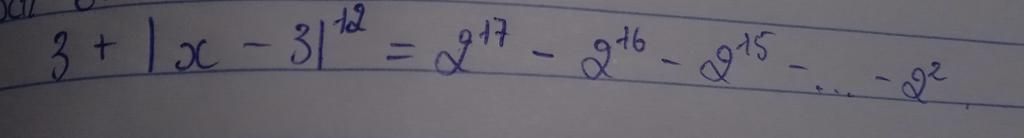 3 + |x - 3|¹² = 2¹⁷ - 2¹⁶ - 2¹⁵ - ... - 2²